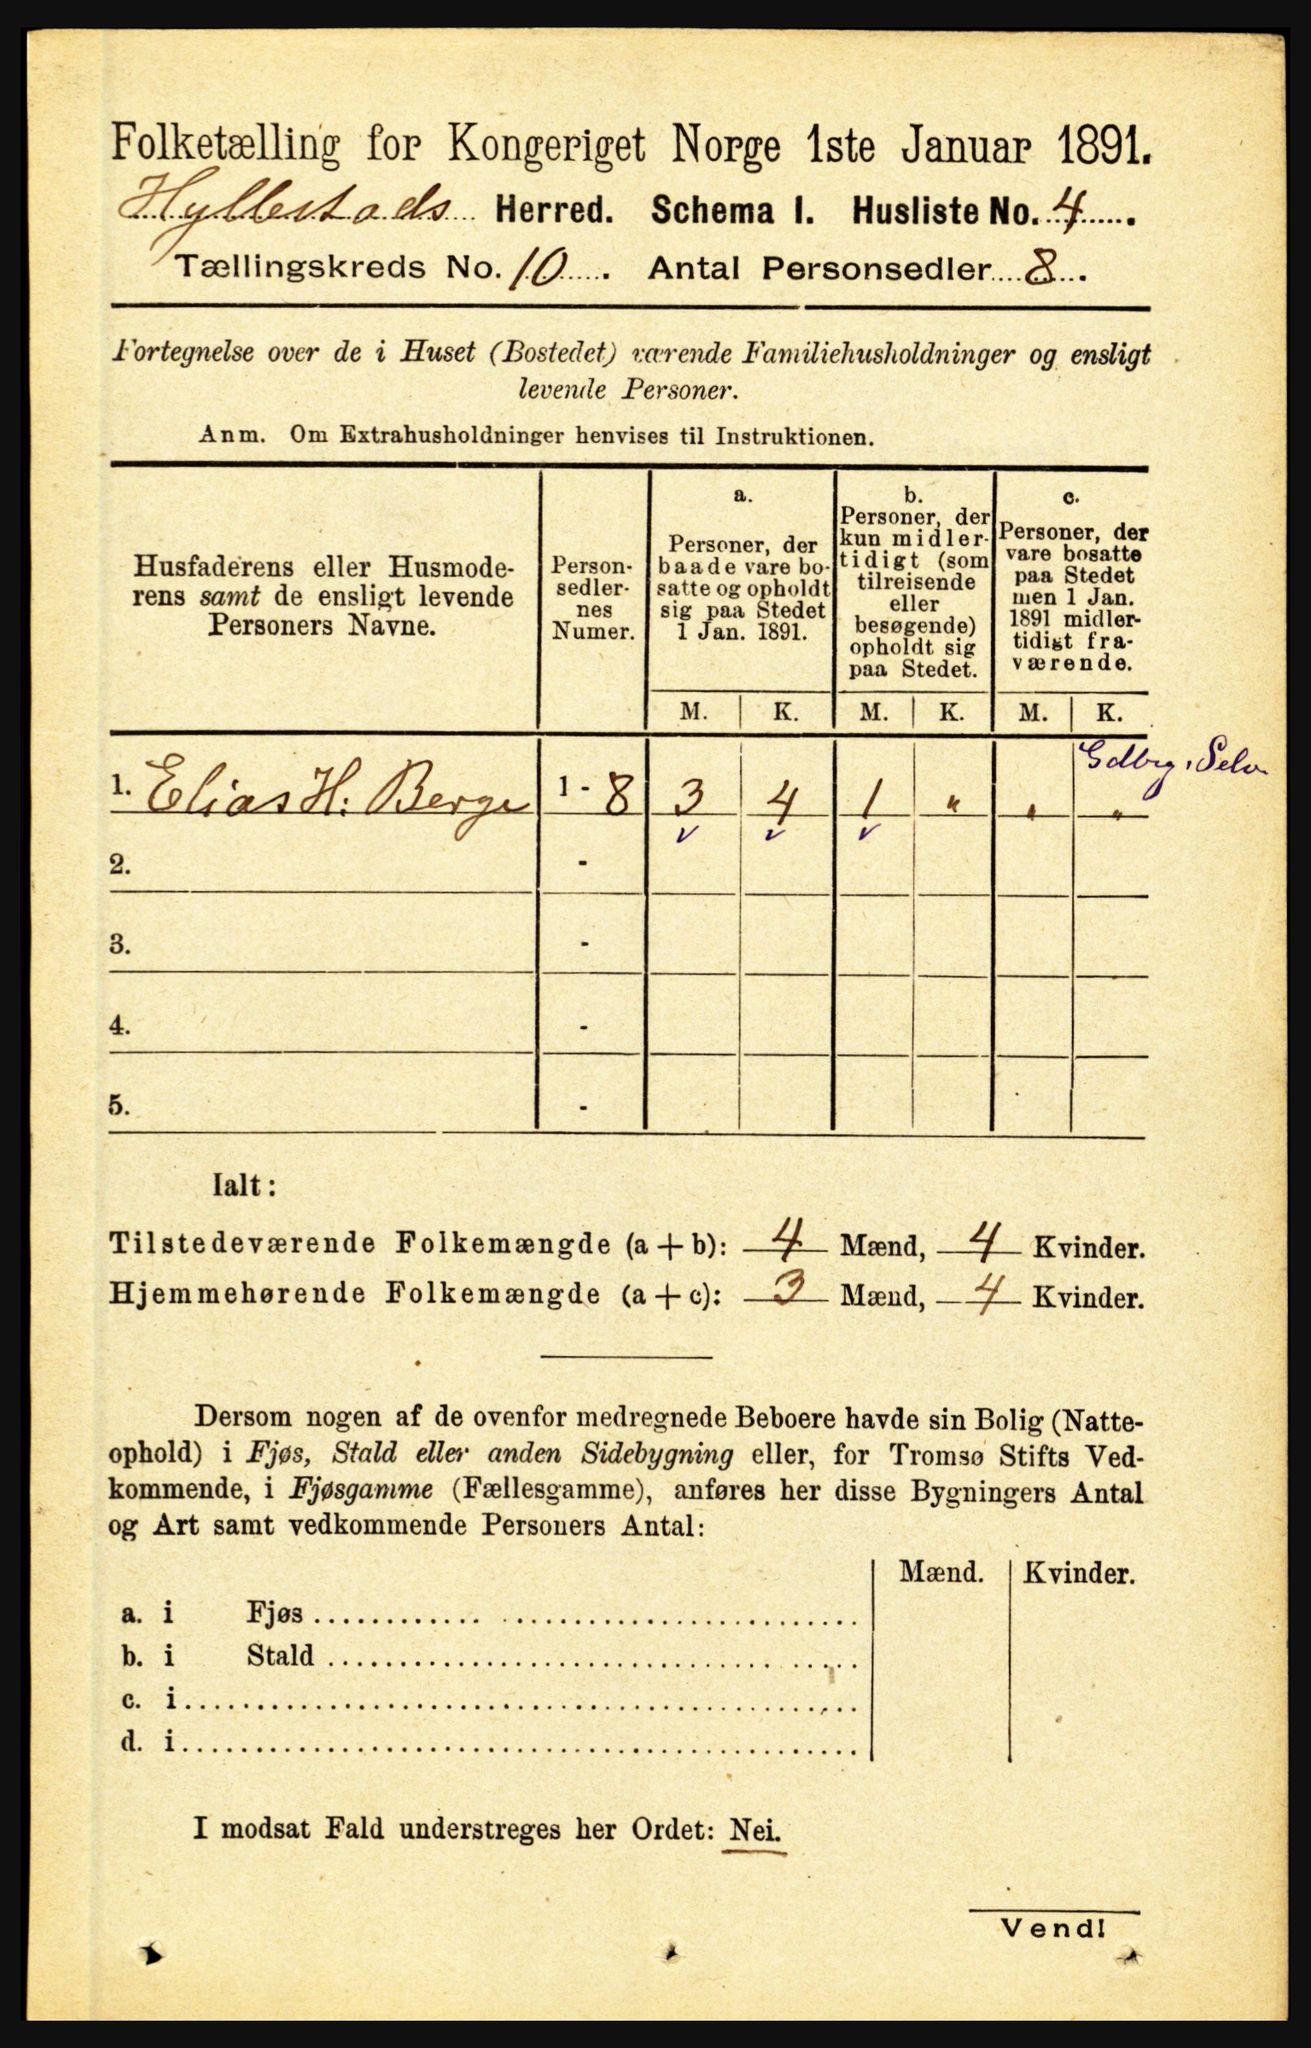 Folketælling for Kongeriget Norge 1ste Januar 1891.
Hyllestads Herred. Schema I. Husliste No. 4.
Tællingskreds No. 10. Antal Personsedler 8.
Fortegnelse over de i Huset (Bostedet) værende Familiehusholdninger og ensligt
levende Personer.
Anm. Om Extrahusholdninger henvises til Instruktionen.
Husfaderens eller Husmode-
rens samt de ensligt levende
Personers Navne.
Person-
sedler-
nes
Numer.
a.
Personer, der
baade vare bo-
satte og opholdt
sig paa Stedet
1 Jan. 1891.
b.
Personer, der
kun midler-
tidigt (som
tilreisende
eller
besøgende)
opholdt sig
paa Stedet.
c.
Personer, der
vare bosatte
paa Stedet
men 1 Jan.
1891 midler-
tidigt fra-
værende.
M. K. M. K. M. K.
Gdbrg, Selv.
1. Elias H. Berge 1 - 8 3 4 1 " " "
v v v
2. -
3. -
4. -
5. -
Ialt:
Tilstedeværende Folkemængde (a + b): 4 Mænd, 4 Kvinder.
Hjemmehørende Folkemængde (a + c): 3 Mænd, 4 Kvinder.
Dersom nogen af de ovenfor medregnede Beboere havde sin Bolig (Natte-
ophold) i Fjøs, Stald eller anden Sidebygning eller, for Tromsø Stifts Ved-
kommende, i Fjøsgamme (Fællesgamme), anføres her disse Bygningers Antal
og Art samt vedkommende Personers Antal:
Mænd. Kvinder.
a. i Fjøs
b. i Stald
c. i
d. i
I modsat Fald understreges her Ordet: Nei.
Vend!